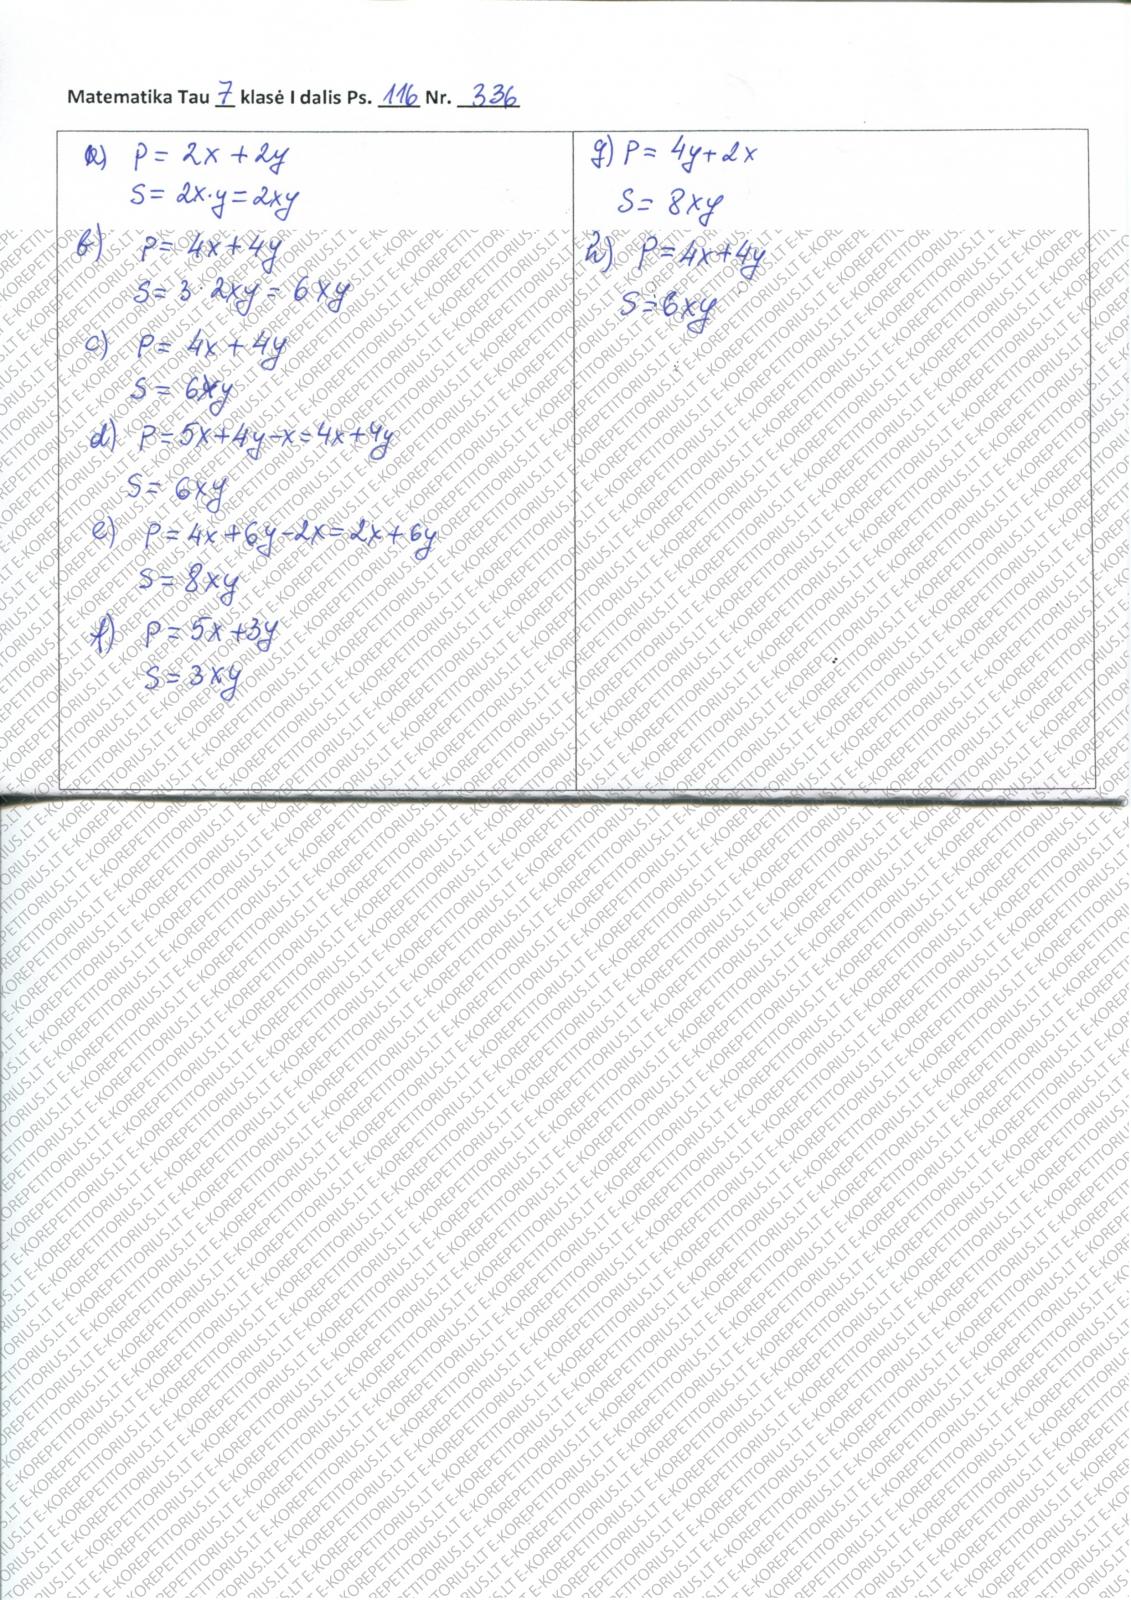 Matematika Tau 7 klasė I dalis Ps. 116 Nr. 336
a) P = 2x + 2y
S = 2x·y = 2xy
b) P = 4x + 4y
S = 3·2xy = 6xy
c) P = 4x + 4y
S = 6xy
d) P = 5x + 4y - x = 4x + 4y
S = 6xy
e) P = 4x + 6y - 2x = 2x + 6y
S = 8xy
f) P = 5x + 3y
S = 3xy
g) P = 4y + 2x
S = 8xy
h) P = 4x + 4y
S = 6xy
E-KOREPETITORIUS.LT